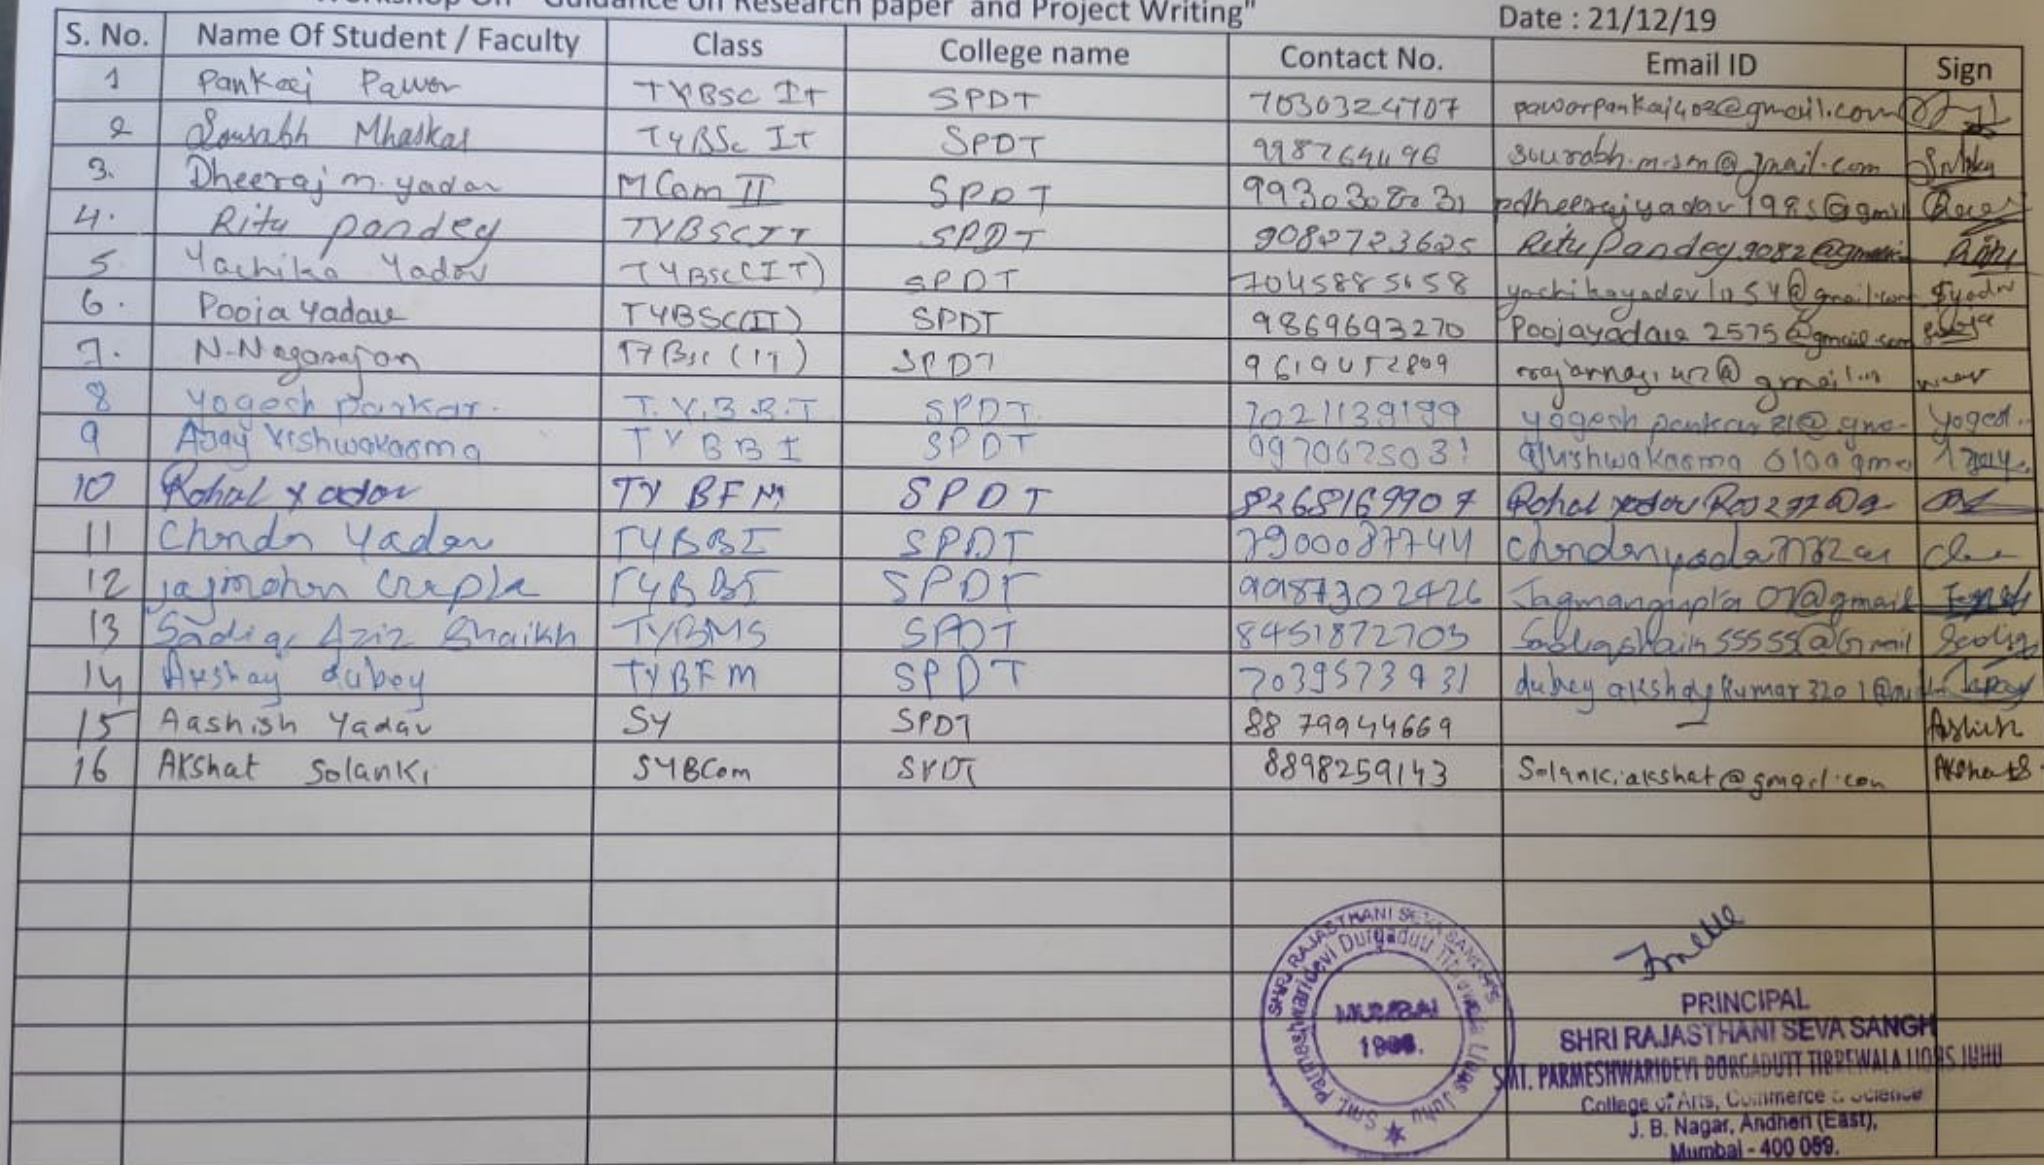 Workshop On "Guidance on Research paper and Project Writing"
Date : 21/12/19
S. No. Name Of Student / Faculty Class College name Contact No. Email ID Sign
1 Pankaj Pawar TYBSC IT SPDT 7030324707 pawarpankaj402@gmail.com
2 Sourabh Mhaskar TYBSc IT SPDT 9987264496 sourabh.m.sm@gmail.com
3. Dheeraj m. yadav MCom II SPDT 9930308031 pdheerajyadav1985@gmil
4. Ritu pandey TYBSCIT SPDT 9082723625 RituPandey9082@gmail Ritu
5 Yachika Yadav TYBSc(IT) SPDT 7045885658 yachikayadav1054@gmail.com Yyadav
6. Pooja Yadav TYBSC(IT) SPDT 9869693270 Poojayadava2575@gmail.com
7. N.Nagarajan TYBsc (IT) SPDT 9619052809
8 yogesh pankar. T.Y.B.B.I SPDT 7021139199 yogesh pankar21@gma- yogesh..
9 Ajay Vishwakarma TYBBI SPDT 9970625031
10 Rohal yadav TY BFM SPDT 8268169907
11 Chandn Yadav TYBBI SPDT 7900087744
12 jajmohan Gupta TYBBI SPDT 9987302426 Jagmangupta07@gmail
13 Sadiqe Aziz Shaikh TYBMS SPDT 8451872703 Sadiqshain55555@Gmail Sadiq
14 Akshay dubey TYBFM SPDT 7039573931 dubey akshay Kumar3201@
15 Aashish Yadav SY SPDT 8879944669 - Ashish
16 Akshat Solanki SYBCom SPDT 8898259143 Solanki.akshat@gmail.com AkshatS
SHRI RAJASTHANI SEVA SANGH'S
Smt. Parmeshwaridevi Durgadutt Tibrewala Lions Juhu
MUMBAI
PRINCIPAL
SHRI RAJASTHANI SEVA SANGH
SMT. PARMESHWARIDEVI DURGADUTT TIBREWALA LIONS JUHU
College of Arts, Commerce & Science
J. B. Nagar, Andheri (East),
Mumbai - 400 059.